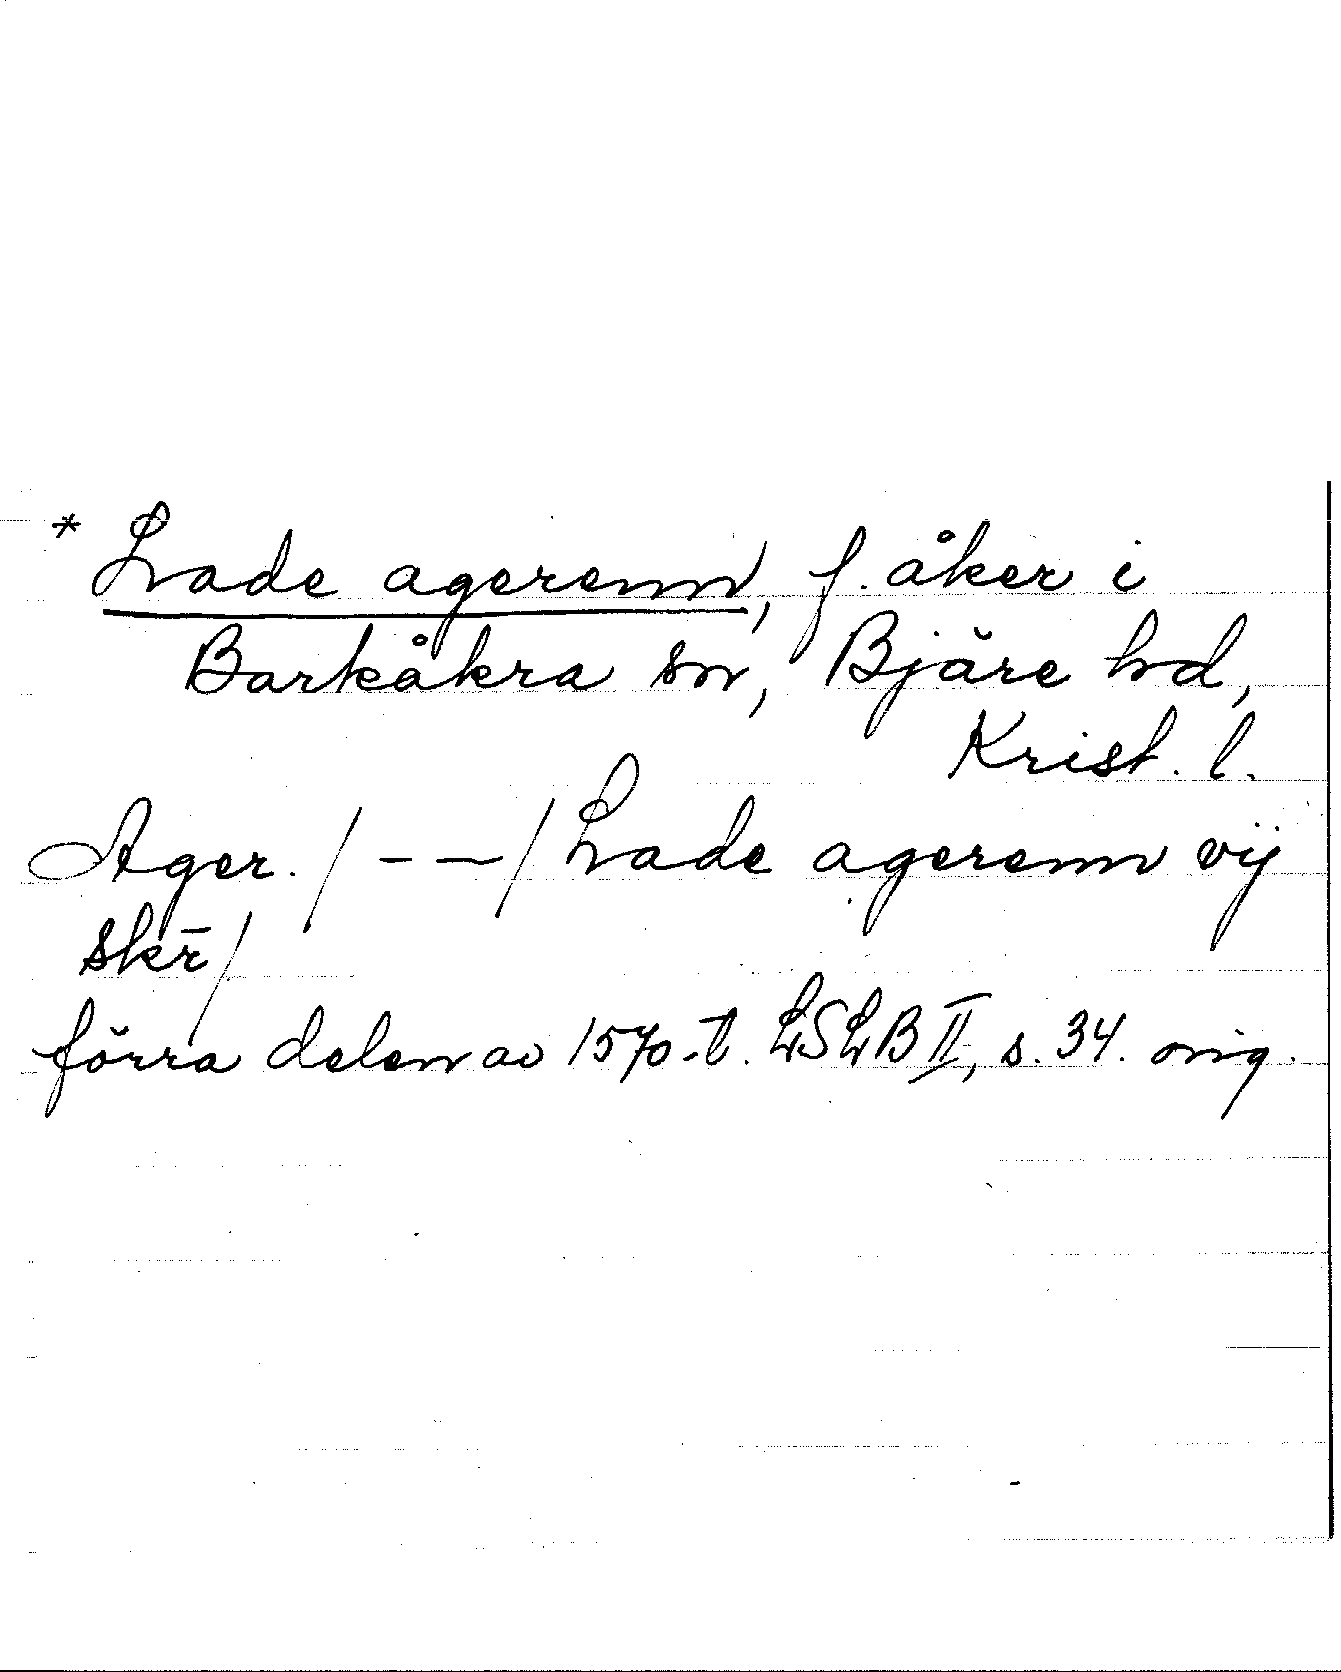 * Lade agerenn, f. åker i
Barkåkra sn, Bjäre hd,
Krist. l.
Ager. /---/ Lade agerenn vij
skr̄/
förra delen av 1570-t. LSLB II, s. 34. orig.